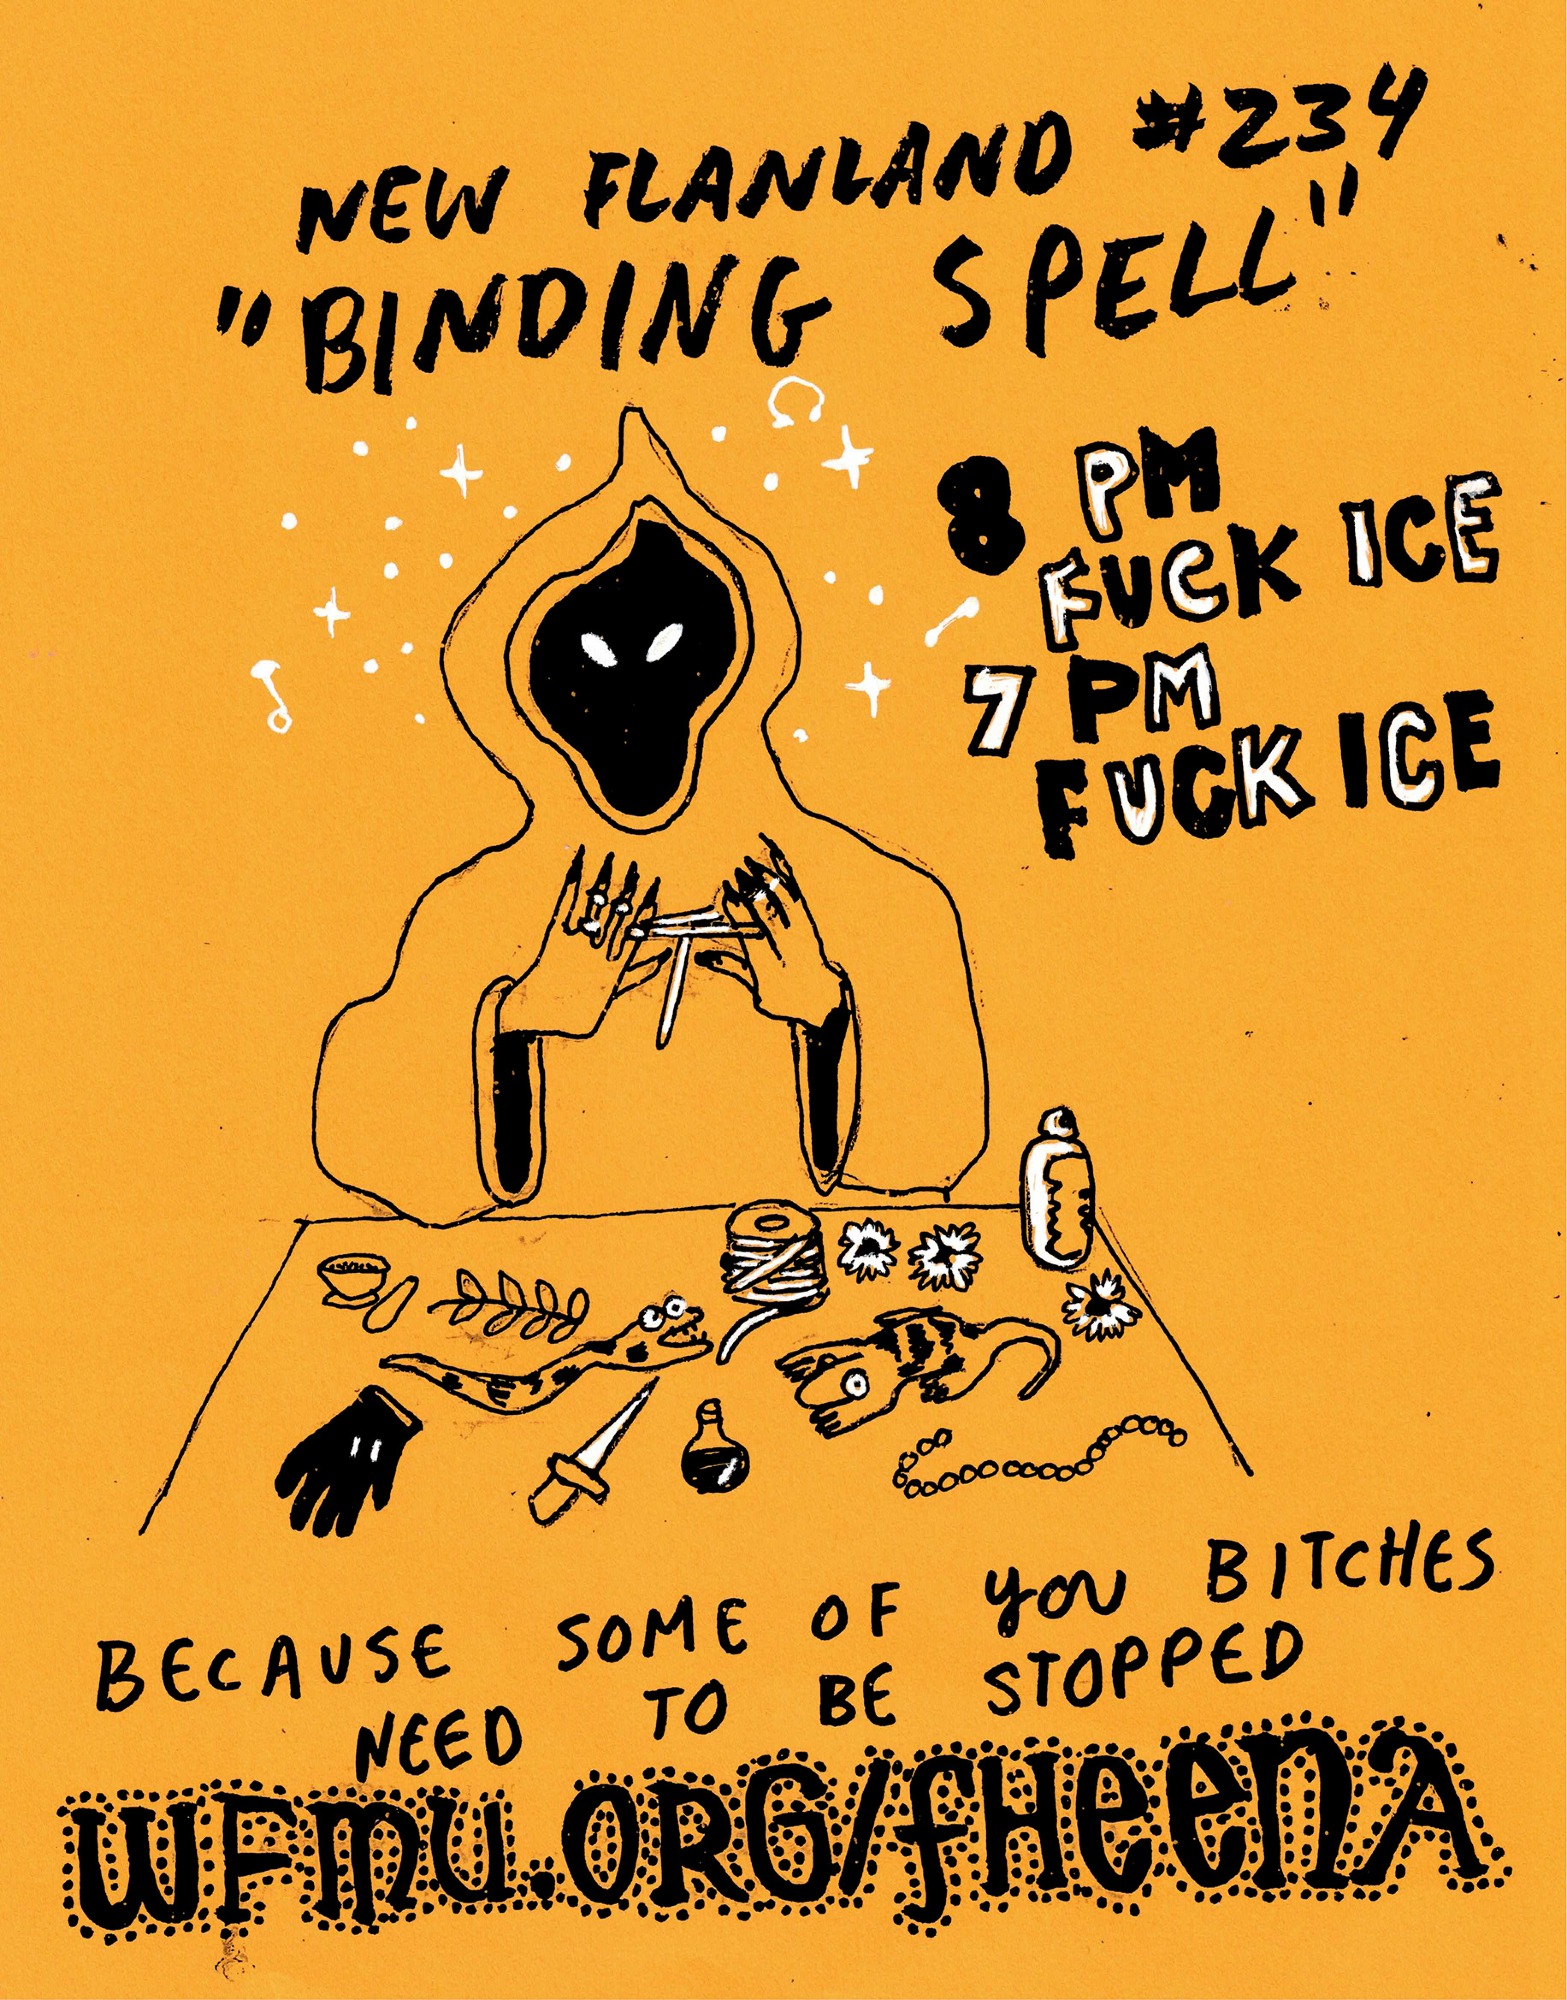 NEW FLANLAND #234
"BINDING SPELL"
8 PM
FUCK ICE
7 PM
FUCK ICE
BECAUSE SOME OF YOU BITCHES
NEED TO BE STOPPED
WFMU.ORG/FHEENA